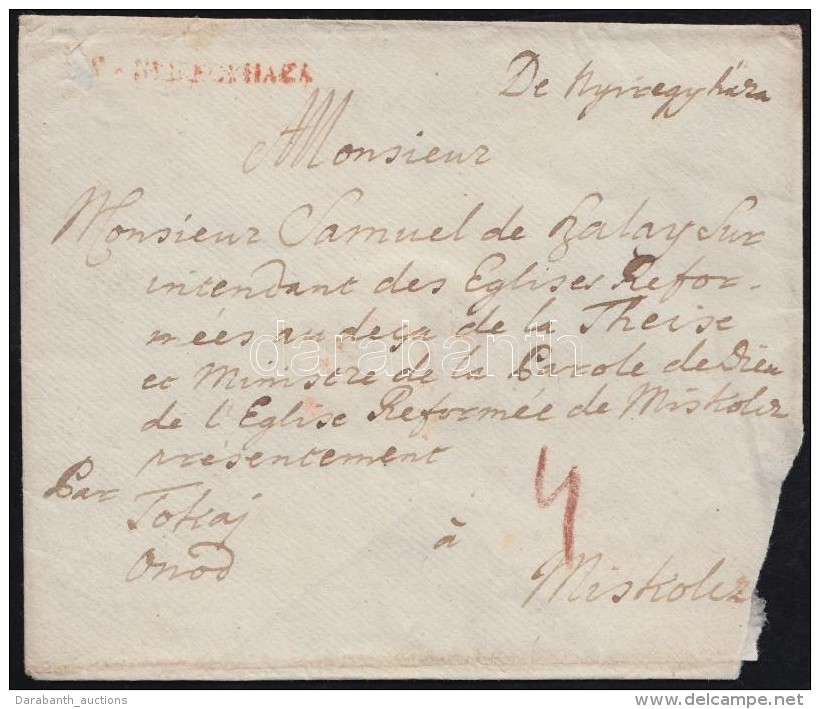 De Nyiregyhäza
Monsieur
Monsieur Samuel de Szalay Sur
intendant des Eglises Refor-
mées au deça de la Theise
et Ministre de la Parole de Dieu
de l'Eglise Reformée de Miskolcz
présentement
Par Tokaj
Onod
à
4
Miskolcz
darabanth
Darabanth_auctions
delcampe.net